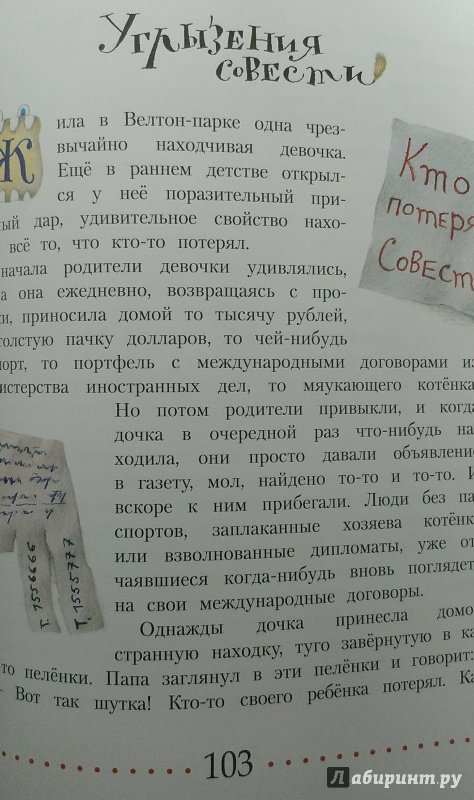 Угрызения
совести
Жила в Велтон-парке одна чрез-
вычайно находчивая девочка.
Ещё в раннем детстве открыл-
ся у неё поразительный при-
ный дар, удивительное свойство нахо-
всё то, что кто-то потерял.
начала родители девочки удивлялись,
а она ежедневно, возвращаясь с про-
ки, приносила домой то тысячу рублей,
толстую пачку долларов, то чей-нибудь
порт, то портфель с международными договорами из
истерства иностранных дел, то мяукающего котёнка
Но потом родители привыкли, и когда
дочка в очередной раз что-нибудь на-
ходила, они просто давали объявление
в газету, мол, найдено то-то и то-то. И
вскоре к ним прибегали. Люди без па-
спортов, заплаканные хозяева котёнк
или взволнованные дипломаты, уже от-
чаявшиеся когда-нибудь вновь поглядет
на свои международные договоры.
Однажды дочка принесла домо
странную находку, туго завёрнутую в ка
то пелёнки. Папа заглянул в эти пелёнки и говорит:
Вот так шутка! Кто-то своего ребёнка потерял. Ка
Кто
потеря
Совест
Т. 1556666
Т. 1555777
103
Лабиринт.ру